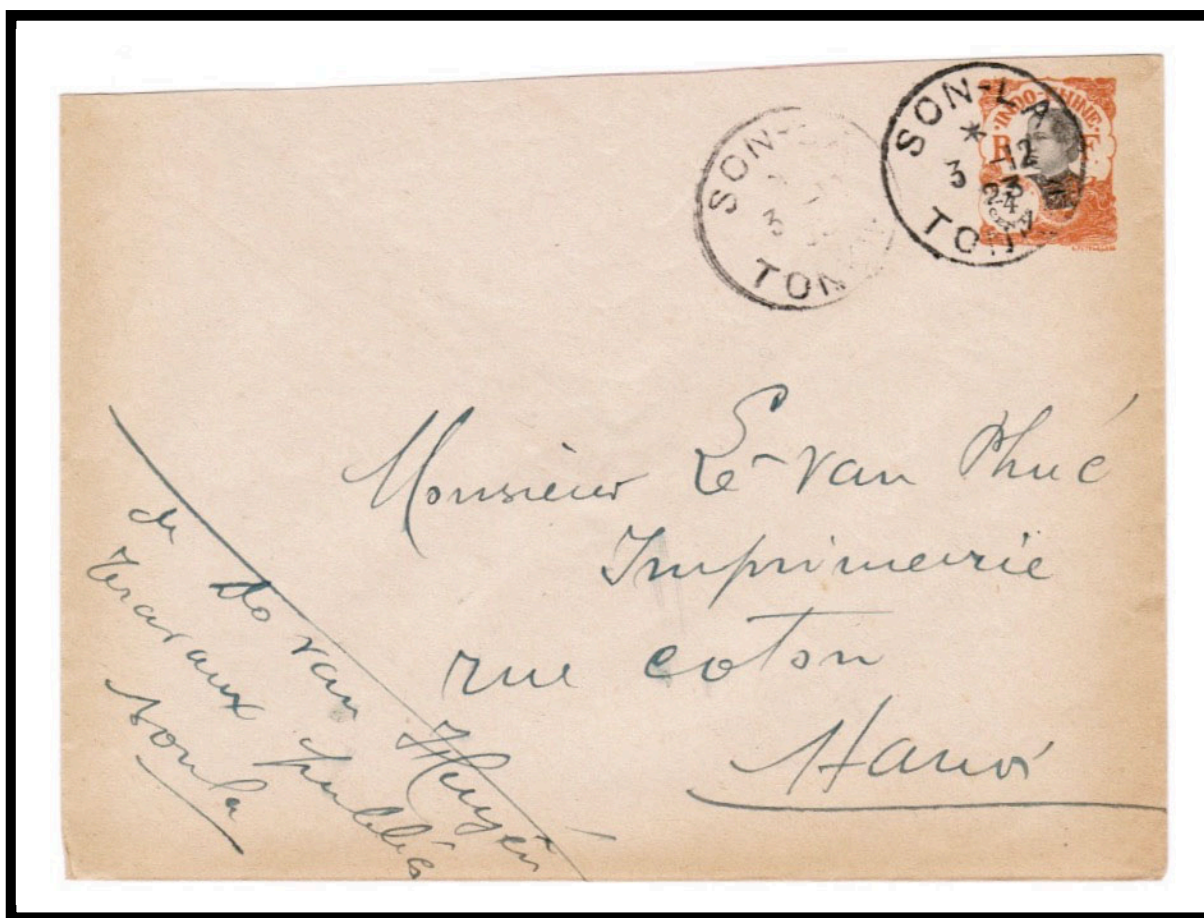 SON-LA
3 -12
24
TON
INDO-CHINE
R F
SON-
3
TON
Monsieur Lê-Van Phuc
Imprimerie
rue coton
Hanoi
de Do van Huyên
Travaux publics
Sonla